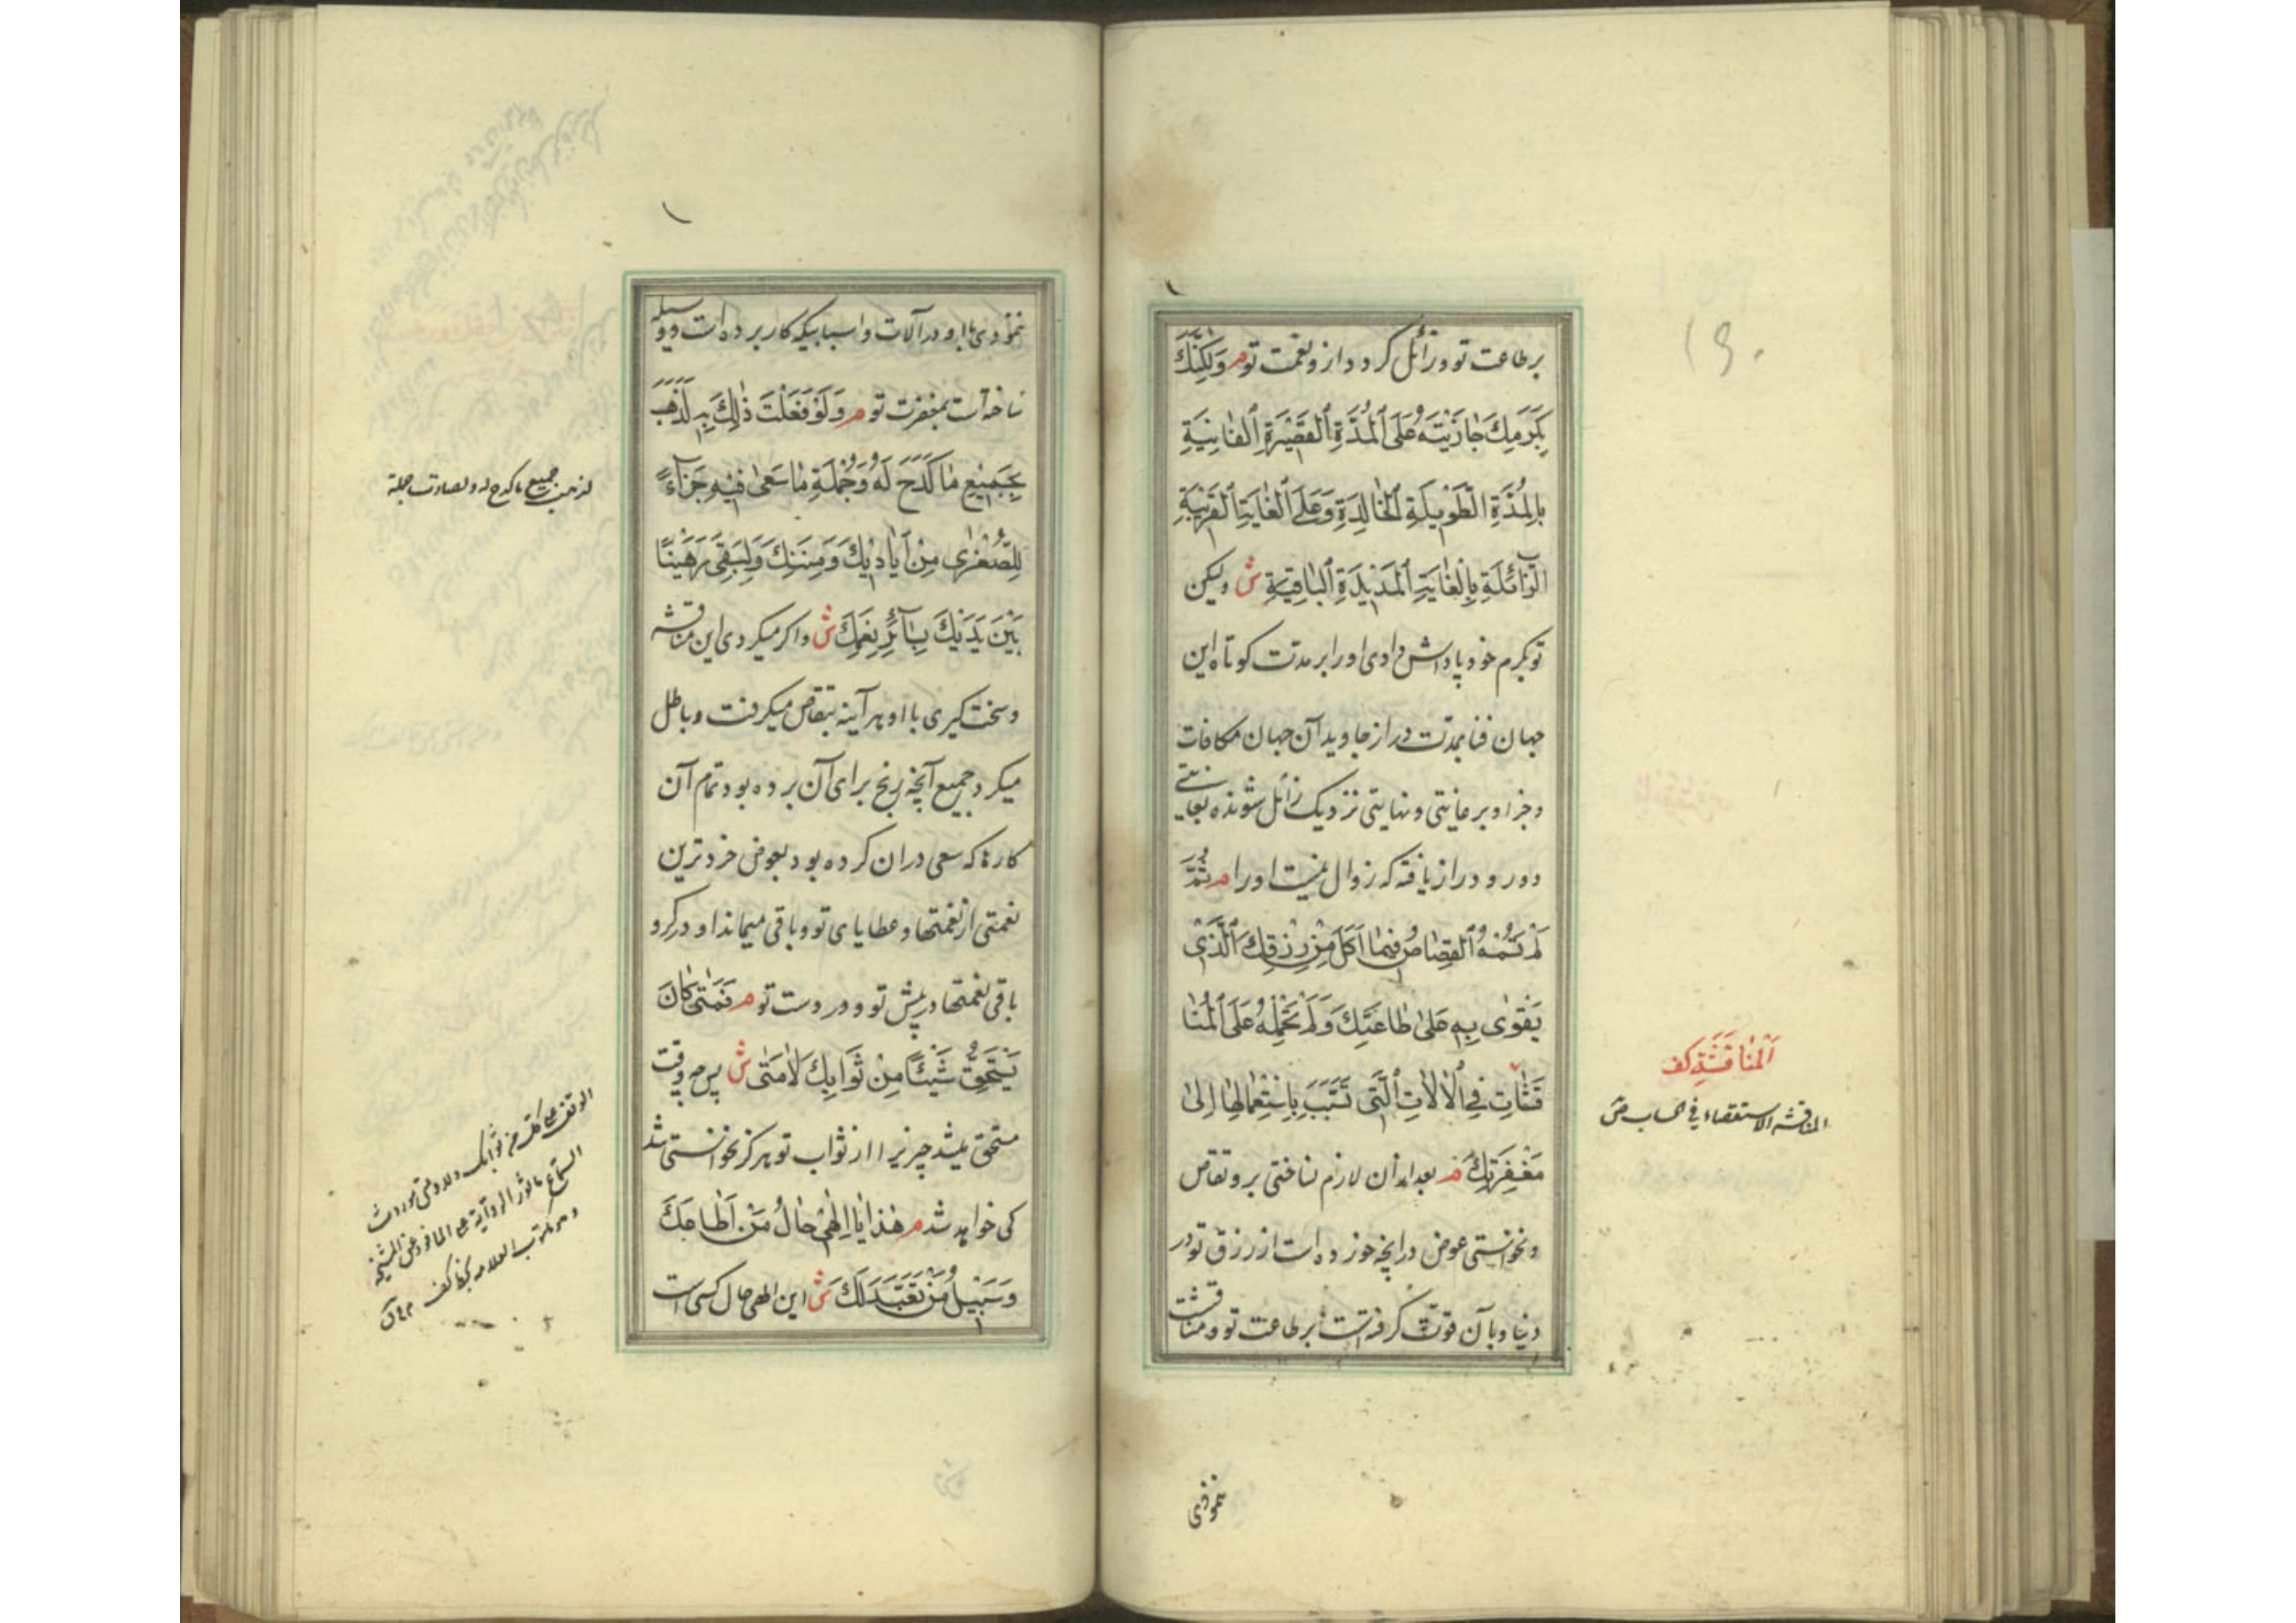 بر طاعت تو و زائل کردد از و نعمت تو م وَلٰكِنَّكَ
بِكَرَمِكَ جَازَيْتَهُ عَلَى الْمُدَّةِ الْقَصِيْرَةِ الْفَانِيَةِ
بِالْمُدَّةِ الطَّوِيلَةِ الْخَالِدَةِ وَعَلَى الْغَايَةِ الْقَرِيْبَةِ
الزَّائِلَةِ بِالْغَايَةِ الْمَدِيْدَةِ الْبَاقِيَةِ ش ولیکن
تو بکرم خود پاداش دادی او را بر مدت کوتاه این
جهان فنا بمدت دراز جاوید آن جهان مکافات
و جزا و بر غایتی و نهایتی نزدیک زائل شونده بغایتے
دور و دراز یافته که زوال نیست او را م ثُمَّ
لَمْ تَسُمْهُ الْقِصَاصَ فِيْمَا اَكَلَ مِنْ رِزْقِكَ الَّذِىْ
يَقْوٰى بِهٖ عَلٰى طَاعَتِكَ وَلَمْ تَحْمِلْهُ عَلَى الْمُنَا
قَشَاتِ فِى الْاٰلَاتِ الَّتِى تَسَبَّبَ بِاسْتِعْمَالِهَا اِلٰى
مَغْفِرَتِكَ م بعد از آن لازم نساختی بر و تقاص
و نخواستی عوض در انچه خورده است از رزق تو در
دنیا و بآن قوت گرفته است بر طاعت تو و مناقشت
اَلْمُنَاقَشَةِ كف
المناقشة الاستقصاء فی الحساب ص
نمودی
نمودی با او در آلات و اسبابیکه کار برده است و وسیله
ساخته است بمغفرت تو م وَلَوْ فَعَلْتَ ذٰلِكَ بِهٖ لَذَهَبَ
بِجَمِيْعِ مَا كَدَحَ لَهُ وَجُمْلَةِ مَا سَعٰى فِيْهِ جَزَآءً
لِلصُّغْرٰى مِنْ اَيَادِيْكَ وَمِنَنِكَ وَلَبَقِىَ رَهِيْنًا
بَيْنَ يَدَيْكَ بِسَآئِرِ نِعَمِكَ ش و اکر میکردی این مناقشه
و سخت کیری با او هر آینه بتقاص میکرفت و باطل
میکرد جمیع آنچه رنج برای آن برده بود و تمام آن
کارها که سعی دران کرده بود بعوض خردترین
نعمتی از نعمتها و عطایای تو و باقی میماند او در کرو
باقی نعمتها در پیش تو و در دست تو م فَمَتٰى كَانَ
يَسْتَحِقُّ شَيْئًا مِنْ ثَوَابِكَ لَا مَتٰى ش پس چه وقت
مستحق میشد چیزیرا از ثواب تو هرکز نخواستی شد
کی خواهد شد م هٰذَا يَا اِلٰهِىْ حَالُ مَنْ اَطَاعَكَ
وَسَبِيْلُ مَنْ تَعَبَّدَ لَكَ ش این الهی حال کسی است
لذهبت جمیع ما کدح له و لصارت جملة